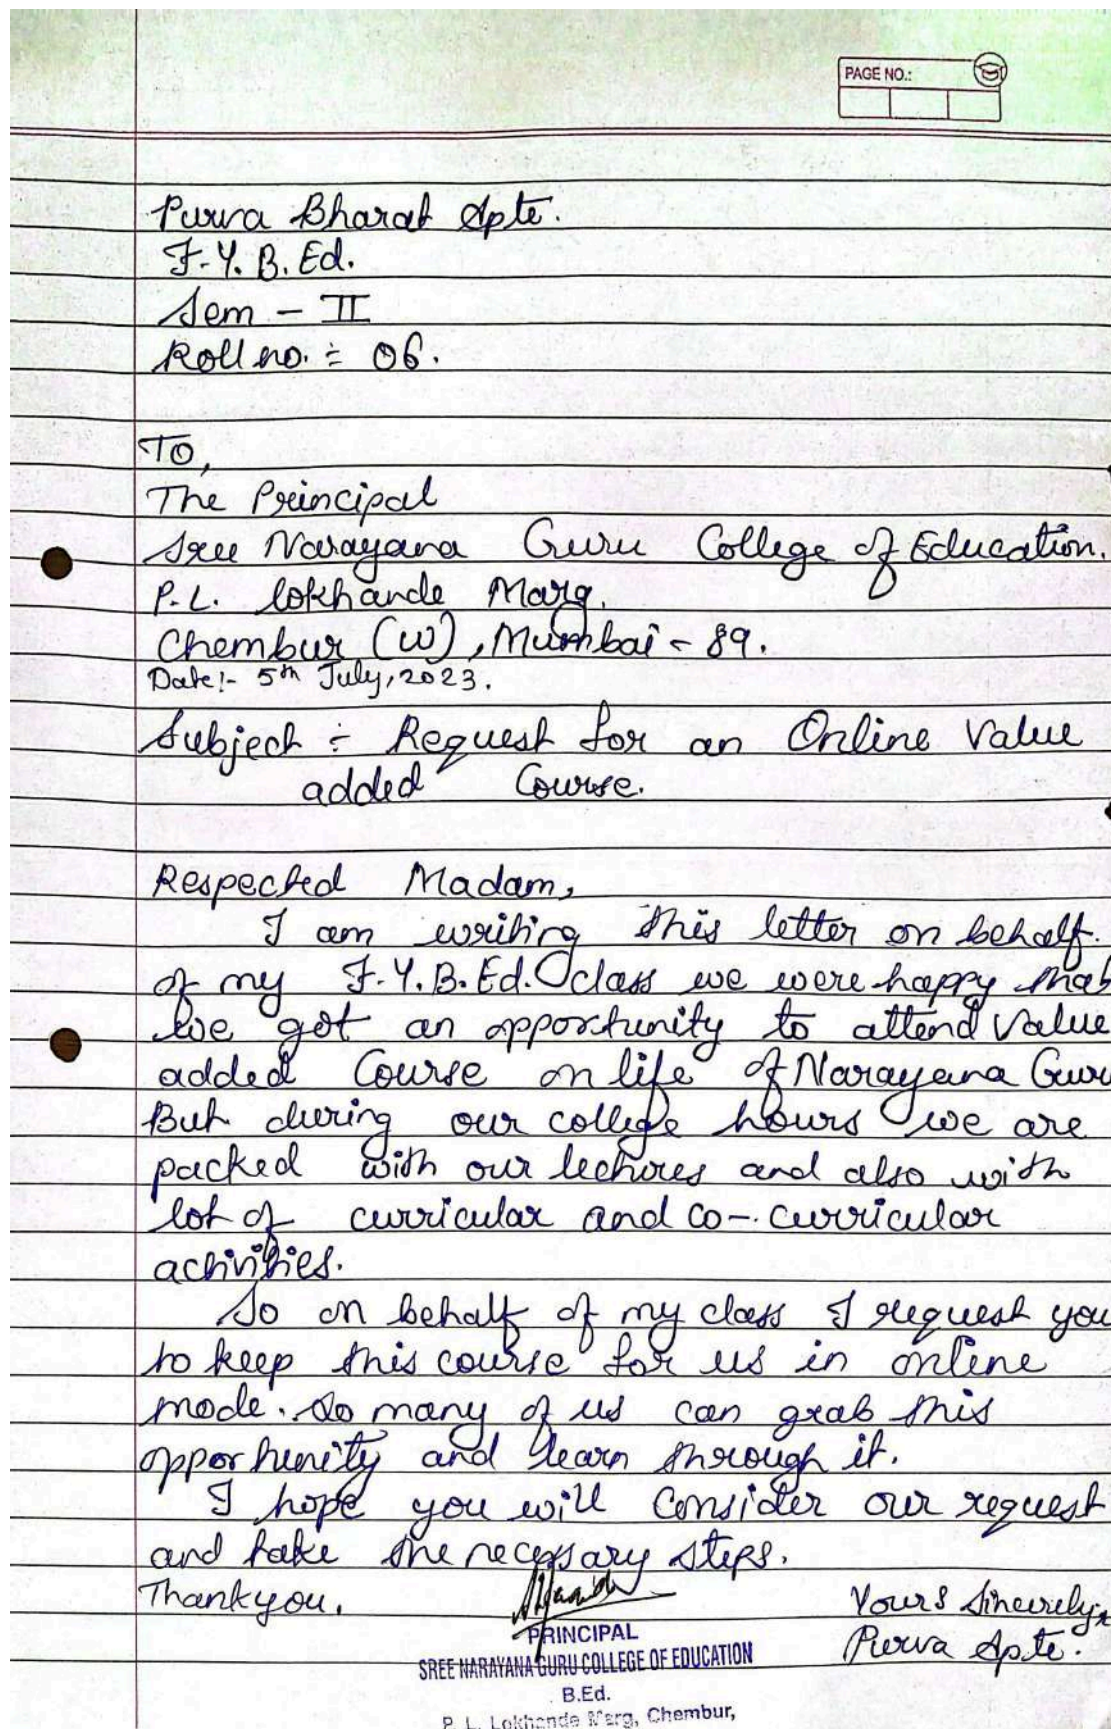 PAGE NO.:
Purva Bharat Apte.
F.Y.B.Ed.
Sem - II
Roll no. :- 06.
To,
The Principal
Sree Narayana Guru College of Education.
P.L. lokhande Marg.
Chembur (W), Mumbai - 89.
Date:- 5th July, 2023.
Subject :- Request for an Online Value
added Course.
Respected Madam,
I am writing this letter on behalf
of my F.Y.B.Ed. class we were happy that
we got an opportunity to attend value
added Course on life of Narayana Guru
But during our college hours we are
packed with our lectures and also with
lot of curricular and co-curricular
activities.
So on behalf of my class I request you
to keep this course for us in online
mode. So many of us can grab this
opportunity and learn through it.
I hope you will consider our request
and take the necessary steps.
Thankyou.
Yours Sincerely,
Purva Apte.
PRINCIPAL
SREE NARAYANA GURU COLLEGE OF EDUCATION
B.Ed.
P. L. Lokhande Marg, Chembur,